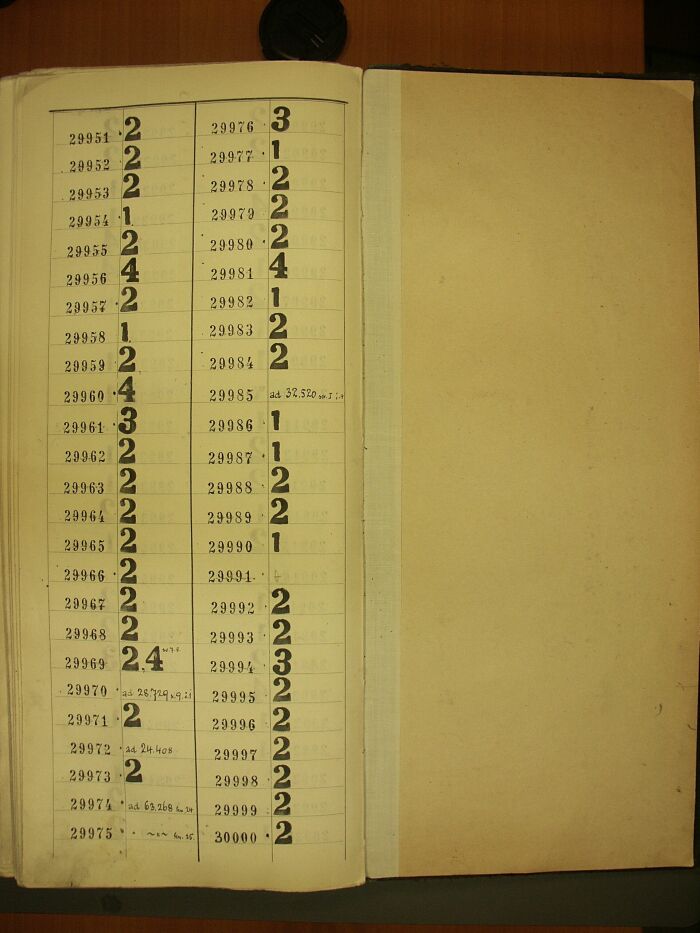 29951 2
29952 2
29953 2
29954 1
29955 2
29956 4
29957 2
29958 1
29959 2
29960 4
29961 3
29962 2
29963 2
29964 2
29965 2
29966 2
29967 2
29968 2
29969 2,4
29970 ad 28,729
29971 2
29972 ad 24.408
29973 2
29974 ad 63,268
29975
29976 3
29977 1
29978 2
29979 2
29980 2
29981 4
29982 1
29983 2
29984 2
29985 ad 32.520
29986 1
29987 1
29988 2
29989 2
29990 1
29991
29992 2
29993 2
29994 3
29995 2
29996 2
29997 2
29998 2
29999 2
30000 2